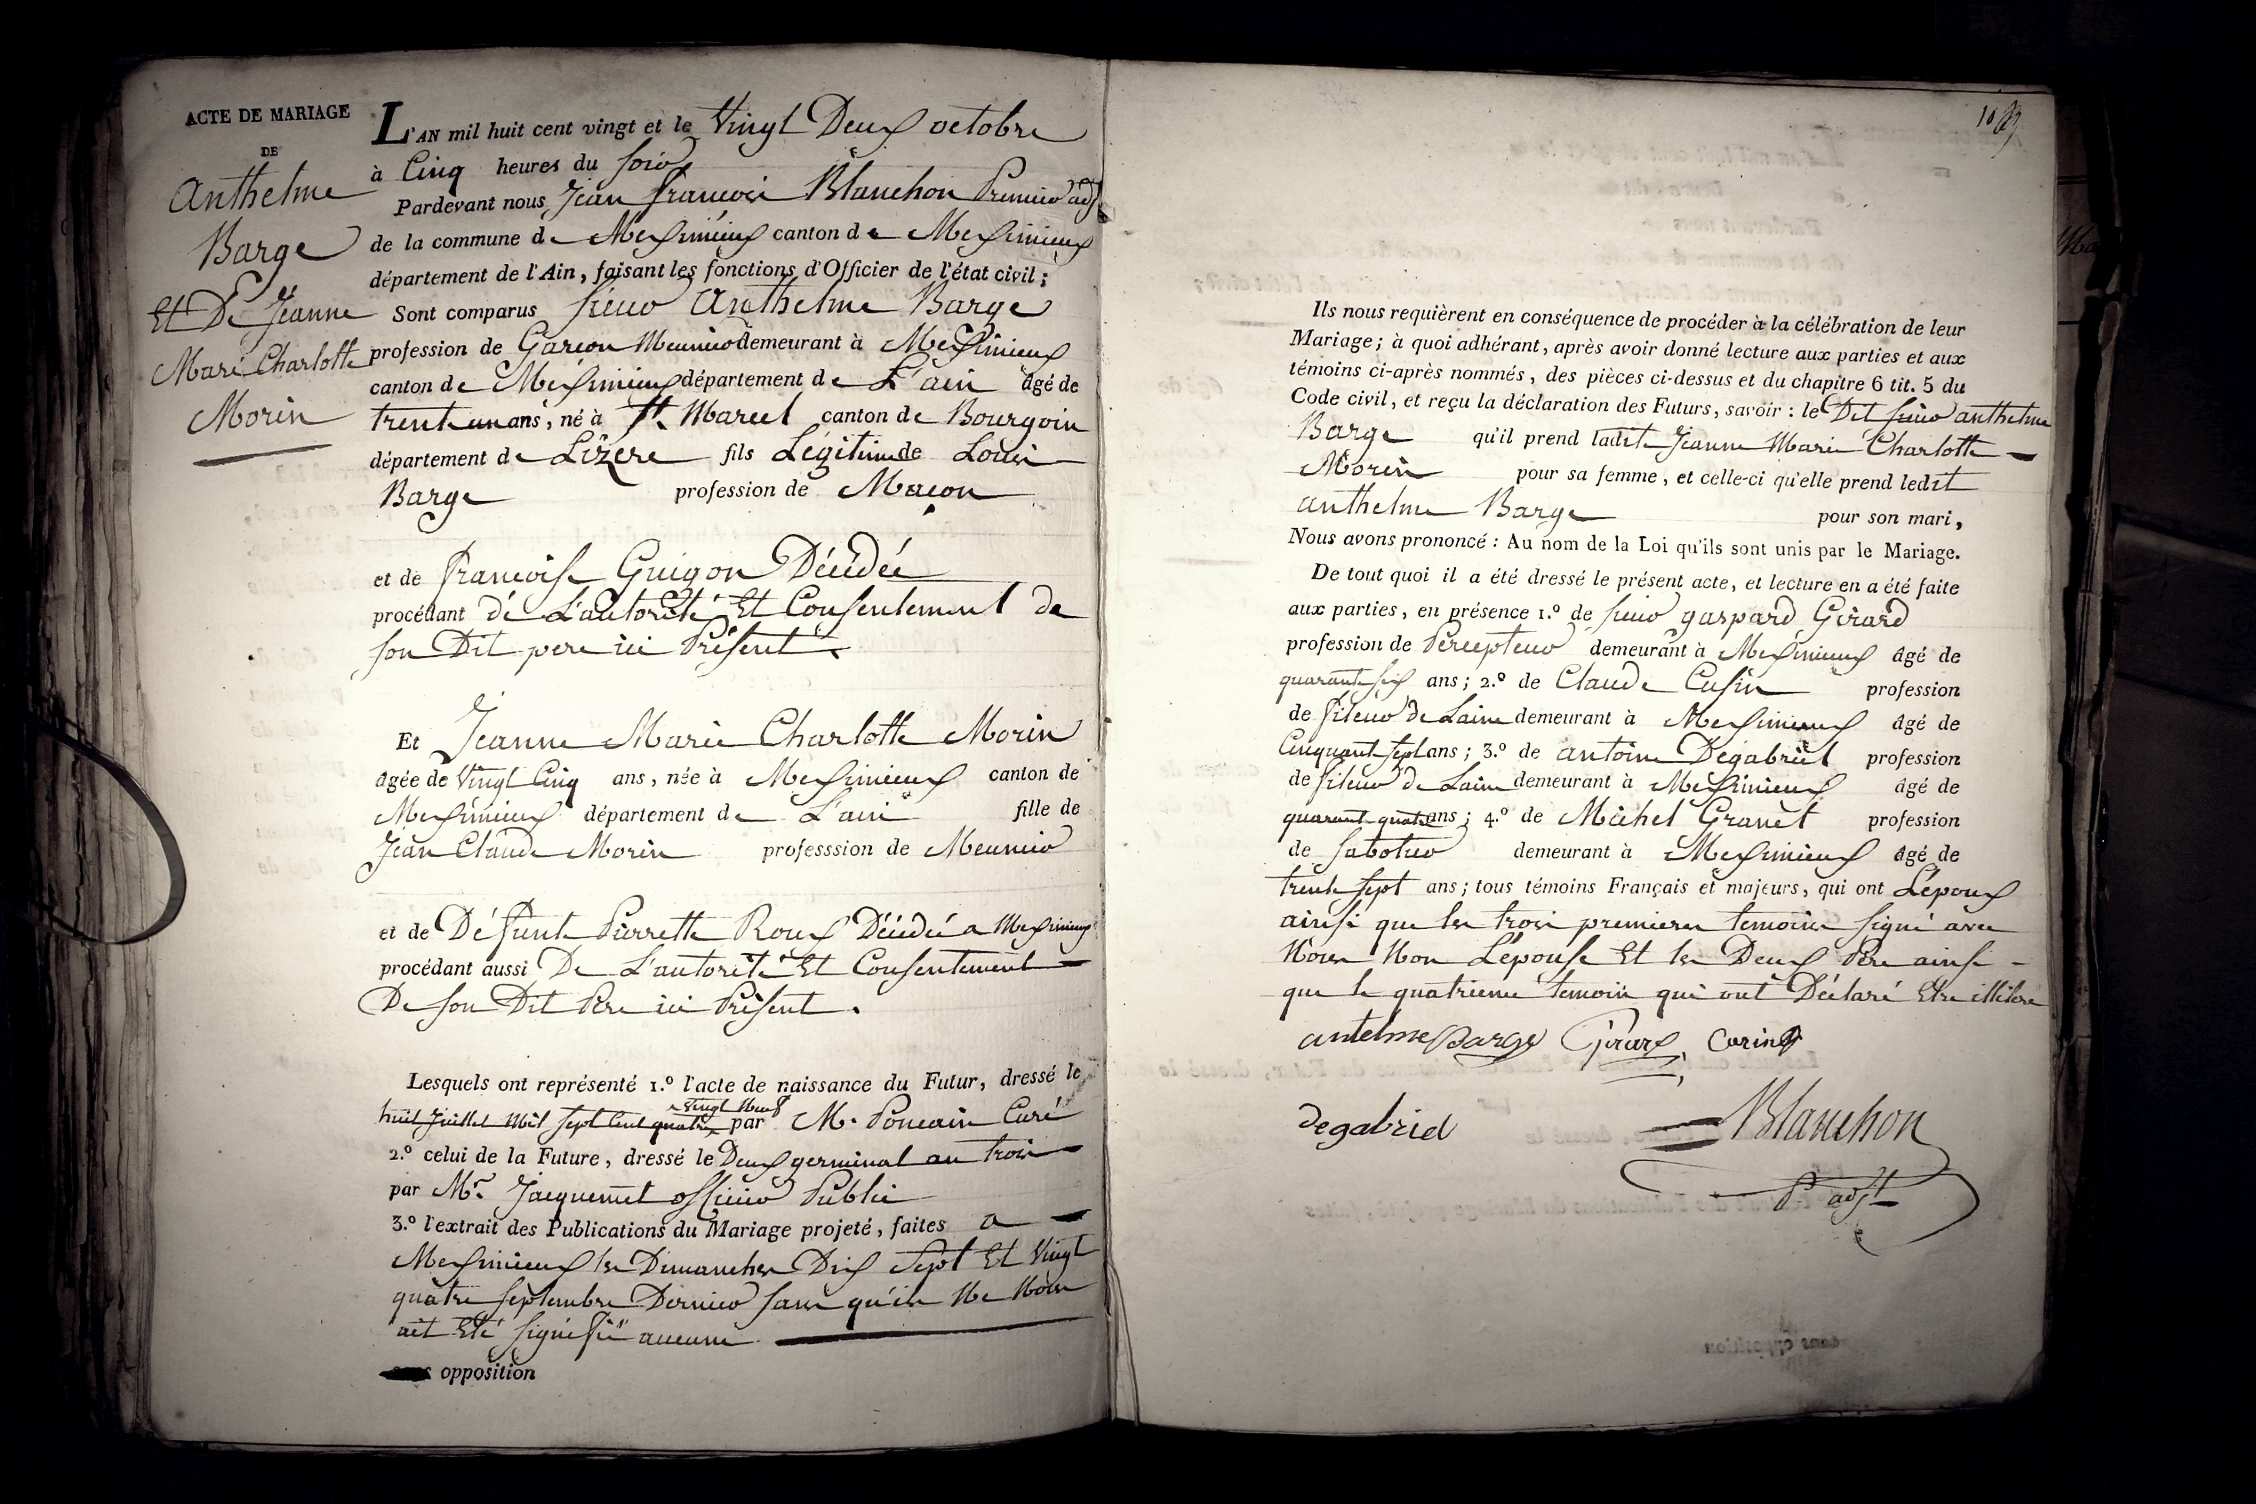 ACTE DE MARIAGE
DE
Anthelme
Barge
Et De Jeanne
Marie Charlotte
Morin
L'AN mil huit cent vingt et le Vingt Deux octobre
à Cinq heures du soir
Pardevant nous Jean francois Blanchon Premier adjt
de la commune de Meximieux canton de Meximieux
département de l'Ain, faisant les fonctions d'Officier de l'état civil;
Sont comparus sieur Anthelme Barge
profession de Garcon Meunier demeurant à Meximieux
canton de Meximieux département de L'ain âgé de
trente un ans, né à St. Marcel canton de Bourgoin
département de Lizere fils Légitime de Louis
Barge profession de Macon
et de francoise Guigon Décédée
procédant de L'autorité Et Consentement de
son Dit pere ici Présent
Et Jeanne Marie Charlotte Morin
âgée de Vingt Cinq ans, née à Meximieux canton de
Meximieux département de L'ain fille de
Jean Claude Morin professsion de Meunier
et de Défunte Pierrette Roux Décédée a Meximieux
procédant aussi De L'autorité Et Consentement
De son Dit Pere ici Présent.
Lesquels ont représenté 1.º l'acte de naissance du Futur, dressé le
huit Juillet Mil sept Cent quatre vingt Neuf par M. Poncain Curé
2.º celui de la Future, dressé le Deux germinal an trois
par Mr. Jacquemet officier Public
3.º l'extrait des Publications du Mariage projeté, faites a
Meximieux les Dimanches Dix Sept Et Vingt
quatre septembre Dernier sans qu'il Ne Nous
ait Eté signifié aucune
opposition
Ils nous requièrent en conséquence de procéder à la célébration de leur
Mariage; à quoi adhérant, après avoir donné lecture aux parties et aux
témoins ci-après nommés, des pièces ci-dessus et du chapitre 6 tit. 5 du
Code civil, et reçu la déclaration des Futurs, savoir : le Dit sieur anthelme
Barge qu'il prend ladite Jeanne Marie Charlotte
Morin pour sa femme, et celle-ci qu'elle prend ledit
anthelme Barge pour son mari,
Nous avons prononcé : Au nom de la Loi qu'ils sont unis par le Mariage.
De tout quoi il a été dressé le présent acte, et lecture en a été faite
aux parties, en présence 1.º de sieur gaspard Girard
profession de Percepteur demeurant à Meximieux âgé de
quarante six ans; 2.º de Claude Cusin profession
de fileur de Laine demeurant à Meximieux âgé de
Cinquante sept ans; 3.º de antoine Degabriel profession
de fileur de Laine demeurant à Meximieux âgé de
quarante quatre ans; 4.º de Michel Granet profession
de sabotier demeurant à Meximieux âgé de
trente sept ans; tous témoins Français et majeurs, qui ont L'époux
ainsi que les trois premiers temoins signé avec
Nous Non L'épouse Et les Deux Pere ainsi
que le quatrieme temoin qui ont Déclaré Etre illiteré
antelme Barge Girard
degabriel
Blanchon
P. adjt